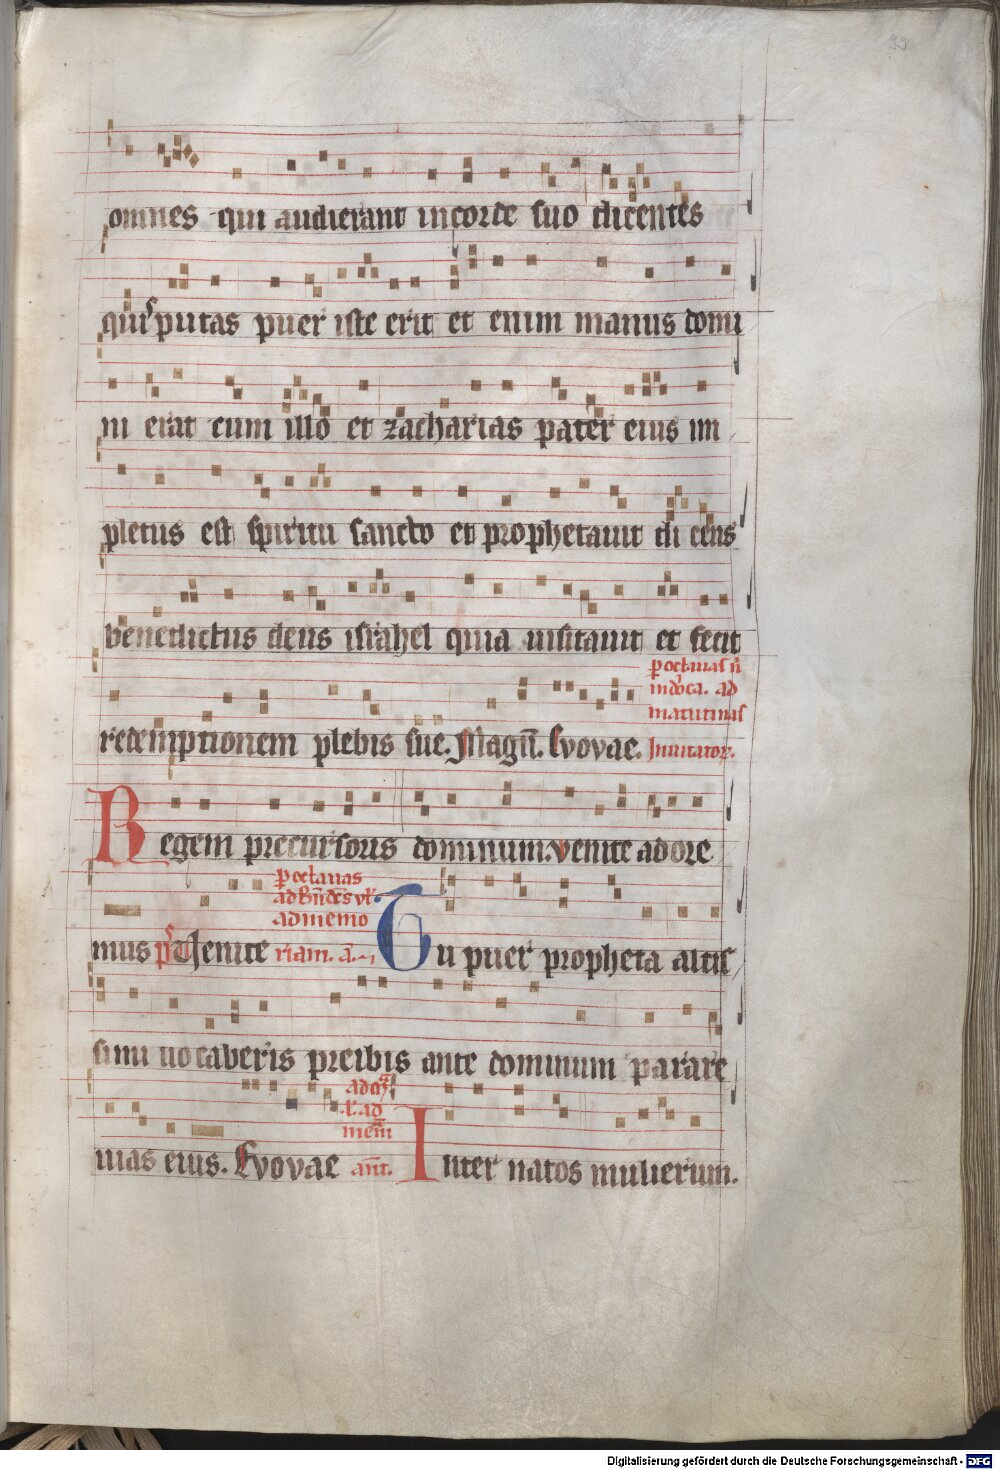 99
omnes qui audierant in corde suo dicentes
quis putas puer iste erit et enim manus domi
ni erat cum illo et zacharias pater eius im
pletus est spiritu sancto et prophetauit di cens
benedictus deus israhel quia uisitauit et fecit
p octauas
ad
matutinas
redemptionem plebis sue. Magn̄. Evovae. Inuitator.
Regem precursoris dominum. venite adore
p octauas
ad memo
mus ps Venite riam. a. Tu puer propheta altis
simi uocaberis preibis ante dominum parare
ad
mem̄
uias eius. Evovae ant. Inter natos mulierum.
Digitalisierung gefördert durch die Deutsche Forschungsgemeinschaft - DFG